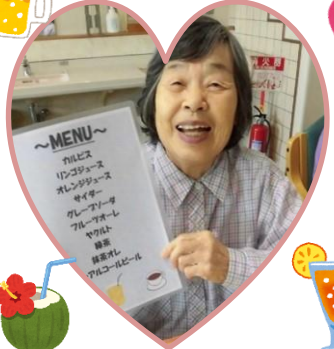 ~MENU~
カルピス
リンゴジュース
オレンジジュース
サイダー
グレープソーダ
フルーツオーレ
ヤクルト
緑茶
抹茶オレ
アルコールビール
消火器